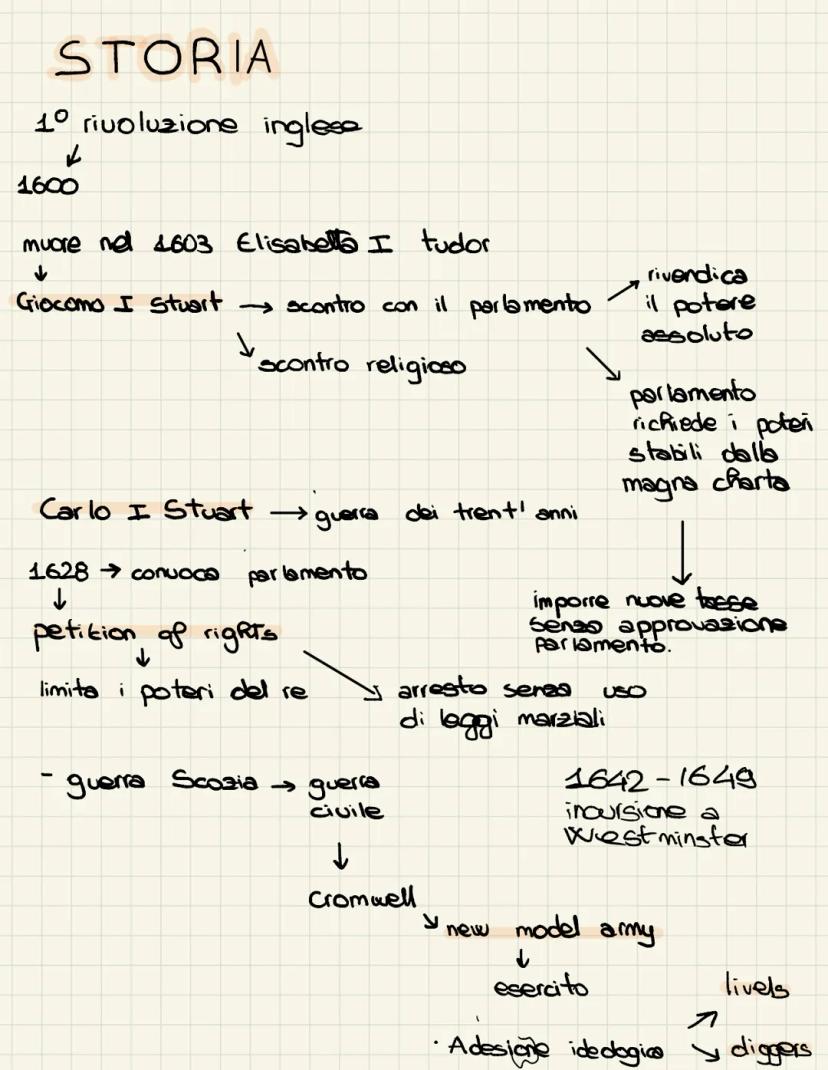 STORIA
1° rivoluzione inglese
↓
1600
muore nel 1603 Elisabetta I tudor
↓
Giacomo I Stuart → scontro con il parlamento
↗ rivendica
il potere
assoluto
↘ scontro religioso
↘ parlamento
richiede i poteri
stabili dalla
magna charta
↓
imporre nuove tasse
senza approvazione
parlamento.
Carlo I Stuart → guerra dei trent' anni
1628 → convoca parlamento
↓
petition of rights
↓
limita i poteri del re
↘ arresto senza uso
di leggi marziali
- guerra Scozia → guerra
civile
1642-1649
incursione a
Westminster
↓
Cromwell
↘ new model army
↓
esercito
· Adesione ideologica
↗ livels
↘ diggers